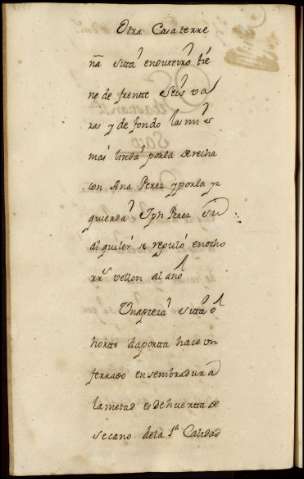 Otra Casa terre
ña sitta en outeiro tie
ne de frente seis va
ras y de fondo las mis
mas linda por la derecha
con Ana Perez y por la yz
quierda Jph Perez su
alquiler se reguló en ocho
rrs vellon al año
Una pieza sitta ô
horto da porta hace un
ferrado en sembradura
la metad es de huerta de
secano de la 1ª Calidad